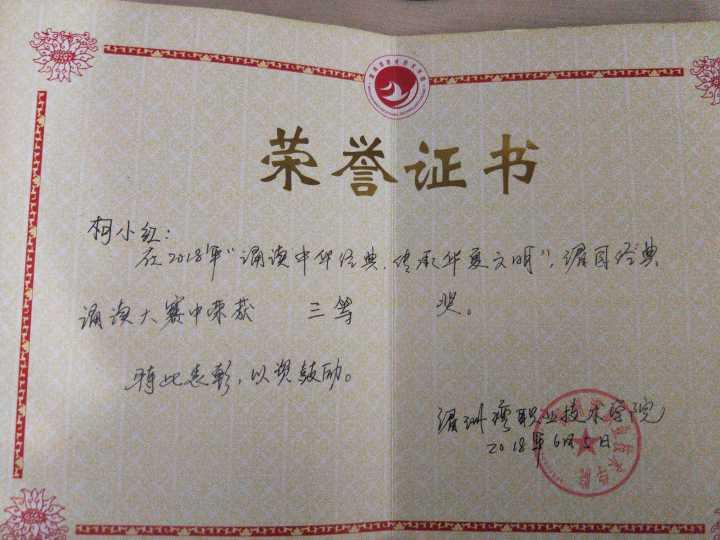 荣誉证书
柯小红:
在2018年“诵读中华经典、传承华夏文明”,湄园经典
诵读大赛中荣获 三等 奖。
特此表彰,以资鼓励。
湄洲湾职业技术学院
2018年6月5日